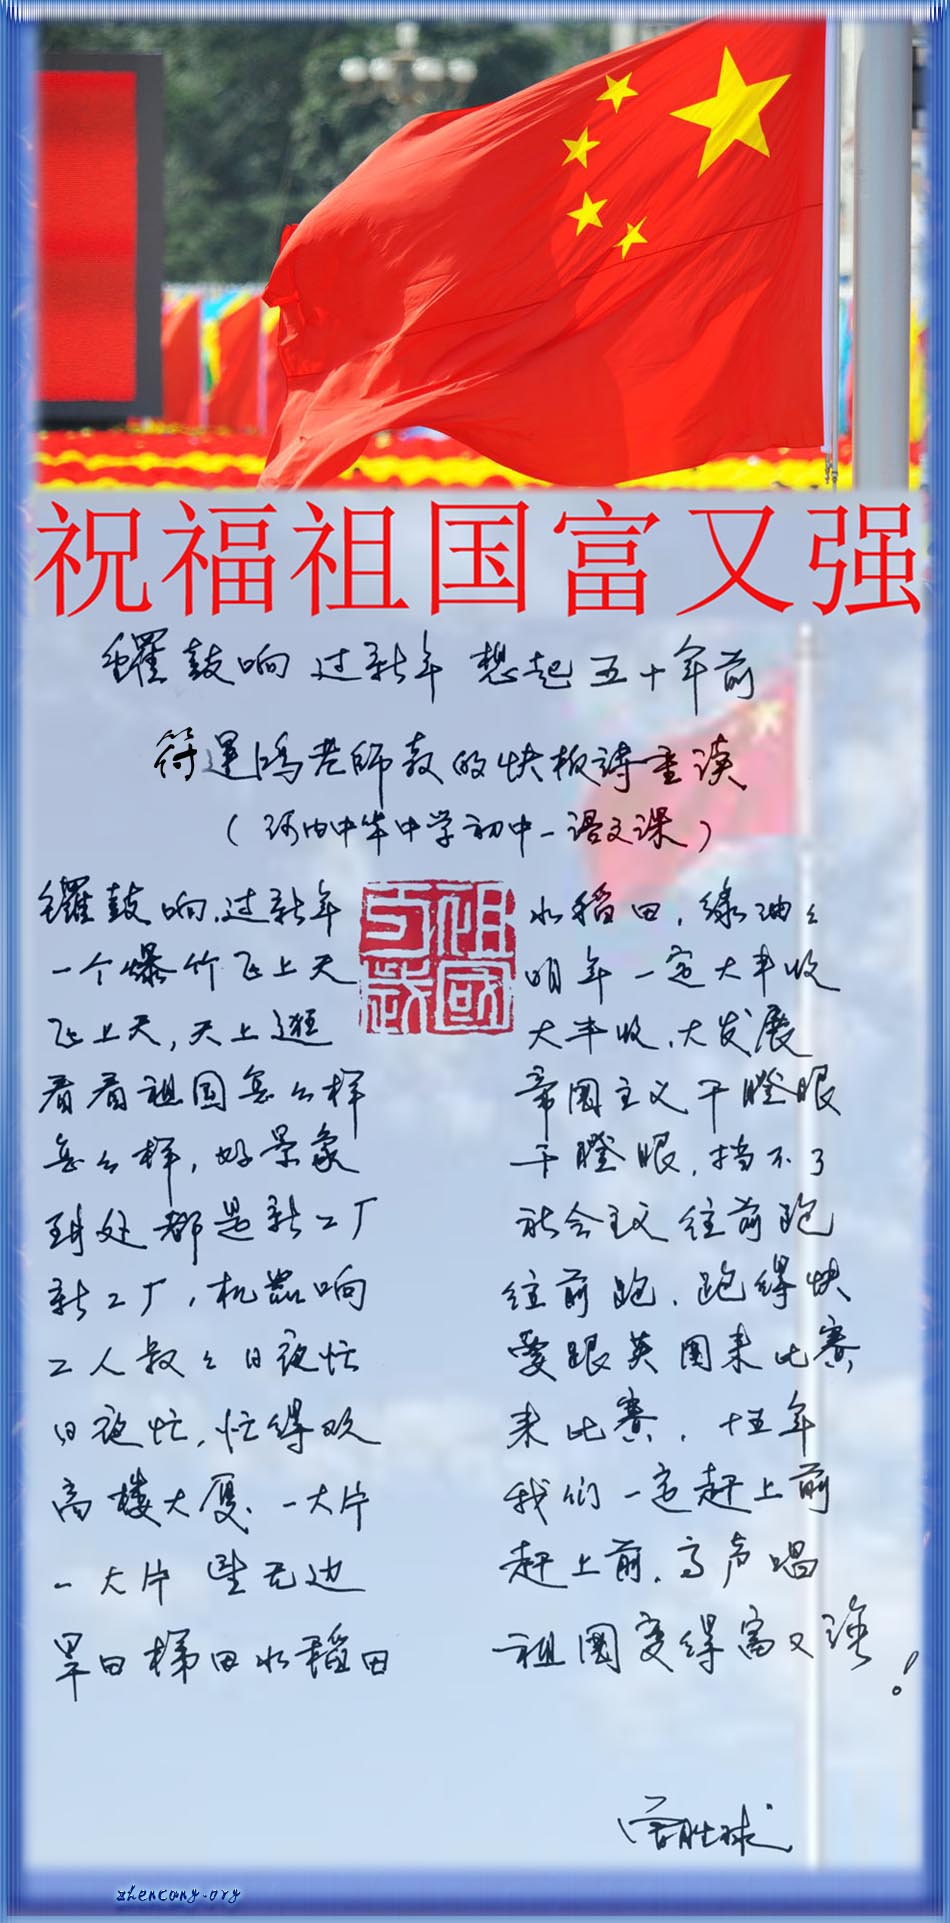 祝福祖国富又强
锣鼓响 过新年 想起五十年前
符運鴻老师教的快板诗重读
(河内中华中学初中一语文课)
锣鼓响,过新年
一个爆竹飞上天
飞上天,天上逛
看看祖国怎么样
怎么样,好景象
到处都是新工厂
新工厂,机器响
工人叔々日夜忙
日夜忙,忙得欢
高楼大厦、一大片
一大片 望无边
旱田梯田水稻田
祖國万歲
水稻田,绿油々
明年一定大丰收
大丰收,大发展
帝國主义干瞪眼
干瞪眼,挡不了
社会主义往前跑
往前跑,跑得快
要跟英國来比赛
来比赛,十五年
我们一定赶上前
赶上前,高声唱
祖國变得富又强!
胜球
zhencang.org